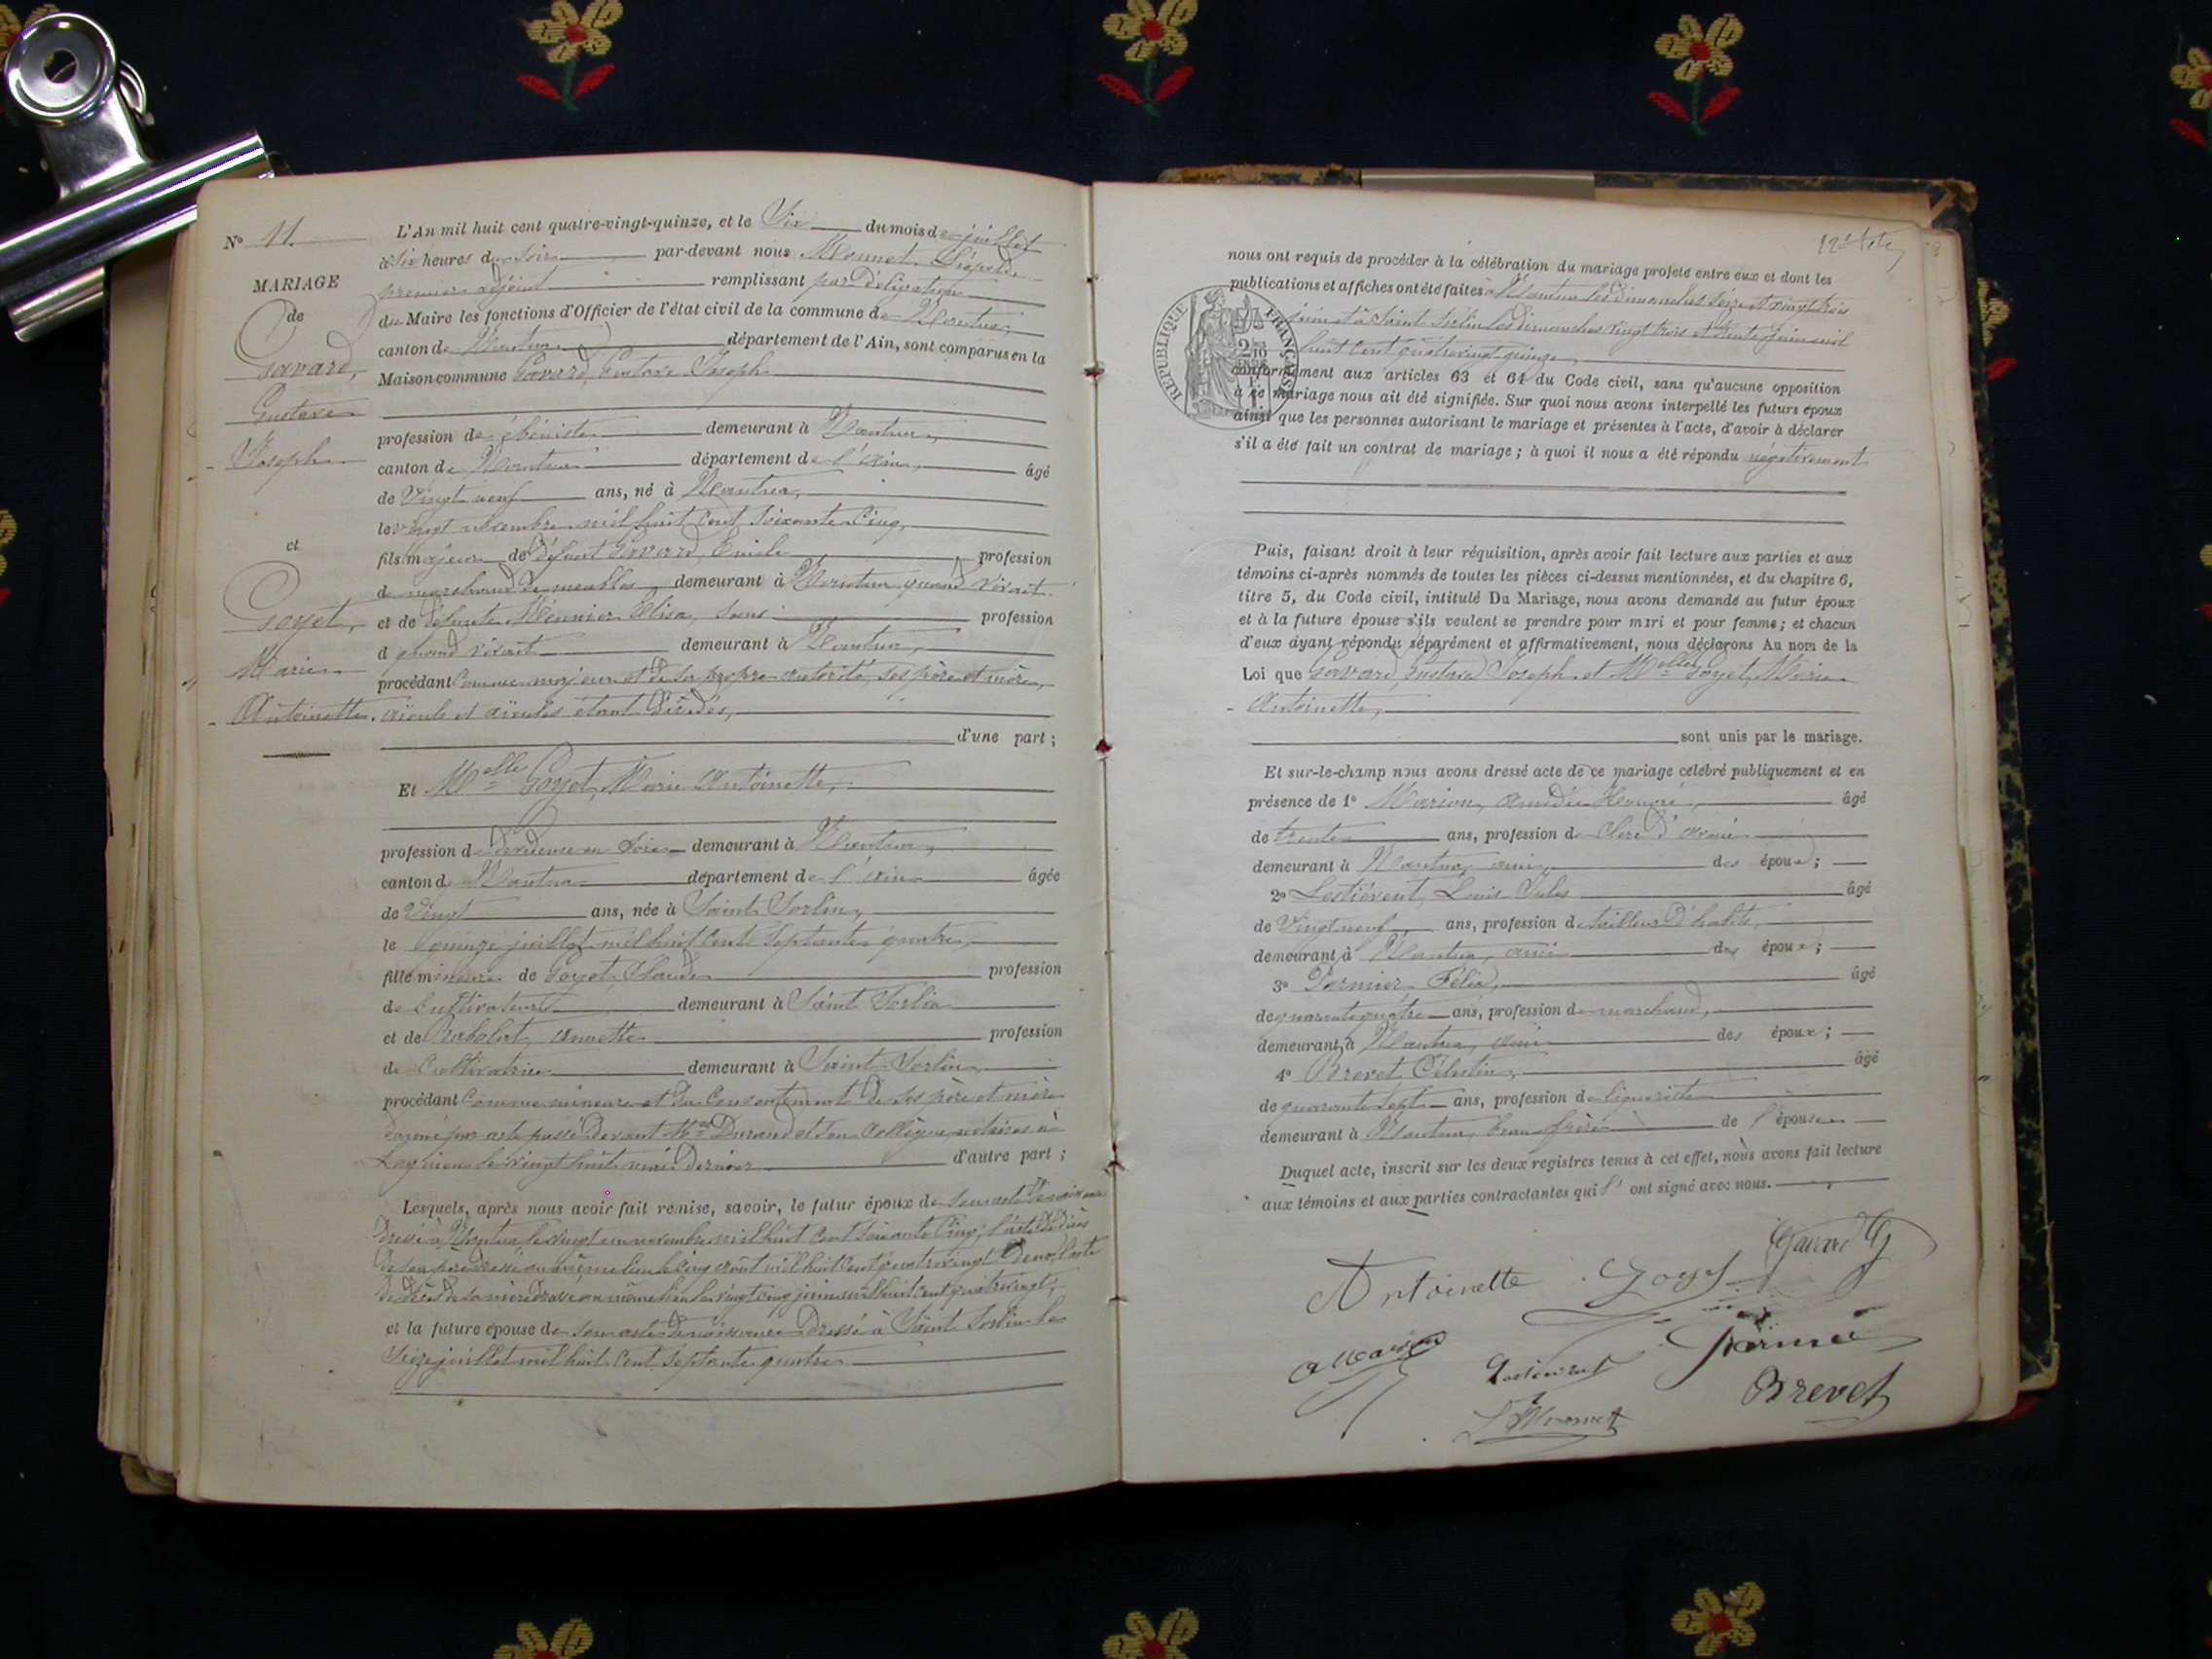 N° 11.
MARIAGE
de
Gavard,
Gustave
Joseph
et
Goyet,
Marie
Antoinette.
L'An mil huit cent quatre-vingt-quinze, et le Six du mois de juillet
à Six heures du Soir par-devant nous Monnet Léopold
premier adjoint remplissant par Délégation
du Maire les fonctions d'Officier de l'état civil de la commune de Nantua,
canton de Nantua département de l'Ain, sont comparus en la
Maison commune Gavard, Gustave Joseph
profession de ébéniste demeurant à Nantua,
canton de Nantua département de l'Ain, âgé
de Vingt neuf ans, né à Nantua,
le vingt novembre mil huit cent soixante cinq,
fils majeur de Défunt Gavard, Emile profession
de marchand de meubles, demeurant à Nantua quand vivait
et de défunte Meunier Elisa, sans profession
d quand vivait demeurant à Nantua,
procédant comme majeur et de sa propre autorité, ses père et mère,
aïeuls et aïeules étant Décédés,
d'une part ;
Et Melle Goyet, Marie Antoinette,
profession de Dévideuse en soie demeurant à Nantua,
canton de Nantua département de l'Ain âgée
de Vingt ans, née à Saint Sorlin,
le quinze juillet mil huit cent septante quatre,
fille mineure de Goyet, Claude profession
de Cultivateur demeurant à Saint Sorlin
et de Annette profession
de Cultivatrice demeurant à Saint Sorlin,
procédant comme mineure et du consentement de ses père et mère
donné par acte passé devant Me Durand et son collègue notaires à
Lagnieu le vingt huit dernier d'autre part ;
Lesquels, après nous avoir fait remise, savoir, le futur époux de son acte de naissance
dressé à Nantua le vingt un novembre mil huit cent soixante cinq, l'acte de décès
de son père dressé au même lieu le cinq août mil huit cent quatre vingt deux, l'acte
de décès de sa mère dressé au même lieu le vingt cinq juin mil huit cent quatre vingt,
et la future épouse de son acte de naissance dressé à Saint Sorlin le
seize juillet mil huit cent septante quatre
nous ont requis de procéder à la célébration du mariage projeté entre eux et dont les
publications et affiches ont été faites à Nantua les dimanches seize et vingt trois
juin et à Saint Sorlin les dimanches vingt trois et trente juin mil
huit cent quatre vingt quinze
conformément aux articles 63 et 64 du Code civil, sans qu'aucune opposition
à ce mariage nous ait été signifiée. Sur quoi nous avons interpellé les futurs époux
ainsi que les personnes autorisant le mariage et présentes à l'acte, d'avoir à déclarer
s'il a été fait un contrat de mariage ; à quoi il nous a été répondu négativement
RÉPUBLIQUE FRANÇAISE
Puis, faisant droit à leur réquisition, après avoir fait lecture aux parties et aux
témoins ci-après nommés de toutes les pièces ci-dessus mentionnées, et du chapitre 6,
titre 5, du Code civil, intitulé Du Mariage, nous avons demandé au futur époux
et à la future épouse s'ils veulent se prendre pour mari et pour femme ; et chacun
d'eux ayant répondu séparément et affirmativement, nous déclarons Au nom de la
Loi que Gavard, Gustave Joseph et Melle Goyet, Marie
Antoinette,
sont unis par le mariage.
Et sur-le-champ nous avons dressé acte de ce mariage célébré publiquement et en
présence de 1° Marion, Amédée Honoré, âgé
de trente ans, profession de Clerc d'avoué
demeurant à Nantua, ami des époux ;
2° Lestiévent, Louis Jules âgé
de Vingt neuf ans, profession de tailleur d'habits,
demeurant à Nantua, ami des époux ;
3° Félix, âgé
de quarante quatre ans, profession de marchand,
demeurant à Nantua, ami des époux ;
4° Brevet Célestin, âgé
de quarante sept ans, profession de liquoriste
demeurant à Nantua, beau frère de l'épouse
Duquel acte, inscrit sur les deux registres tenus à cet effet, nous avons fait lecture
aux témoins et aux parties contractantes qui l' ont signé avec nous.
Gavard G
Antoinette Goyet
A Marion
Lestiévent
Brevet
L Monnet